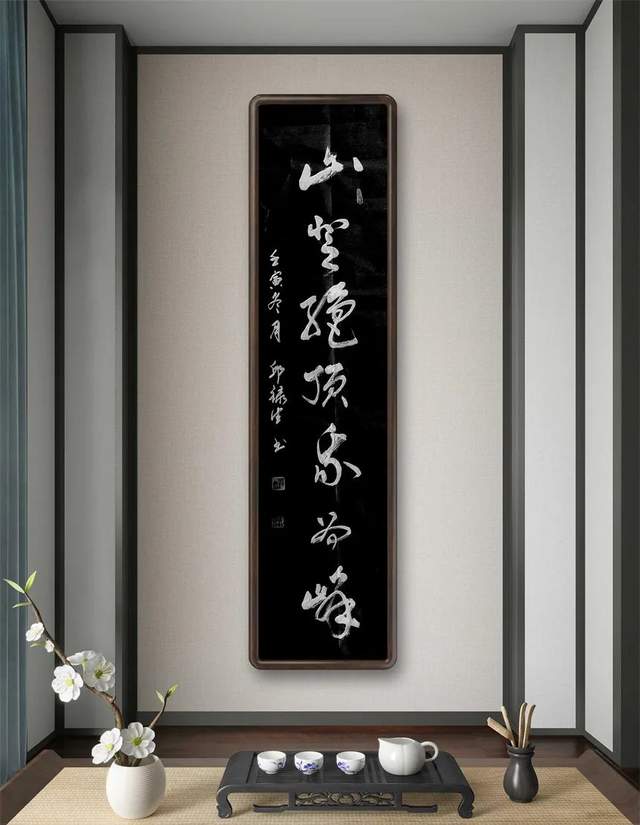 山登绝顶我为峰
壬寅冬月 邱禄生书